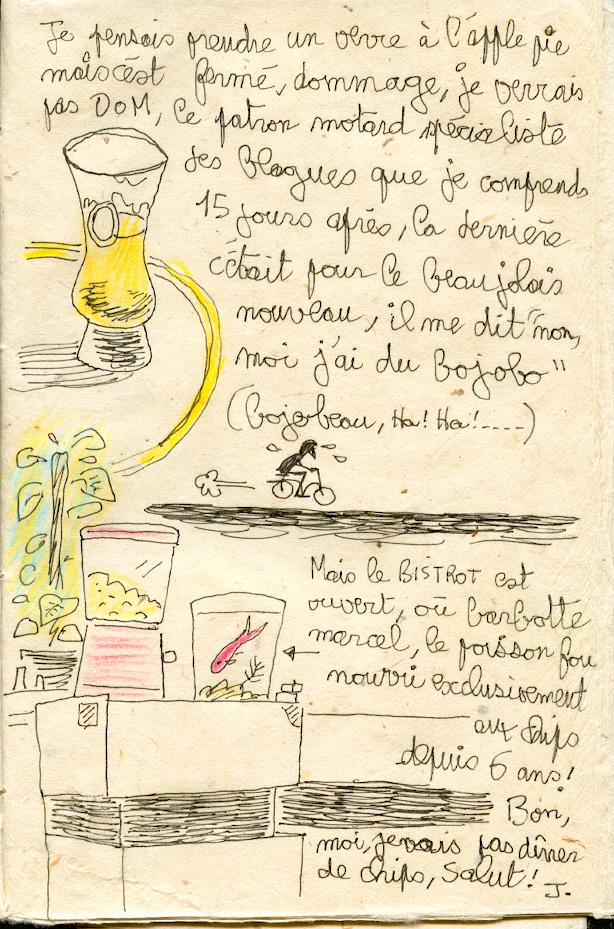 Je pensais prendre un verre à l'apple pie
mais c'est fermé, dommage, je verrais
pas DOM, le patron motard spécialiste
des blagues que je comprends
15 jours après, la dernière
c'était pour le beaujolais
nouveau, il me dit "non,
moi j'ai du bojobo"
(bojobeau, Ha! Ha!....)
Mais le BISTROT est
ouvert, où barbotte
marcel, le poisson fou
nourri exclusivement
aux chips
depuis 6 ans!
Bon,
moi, je vais pas dîner
de chips, Salut!
J.